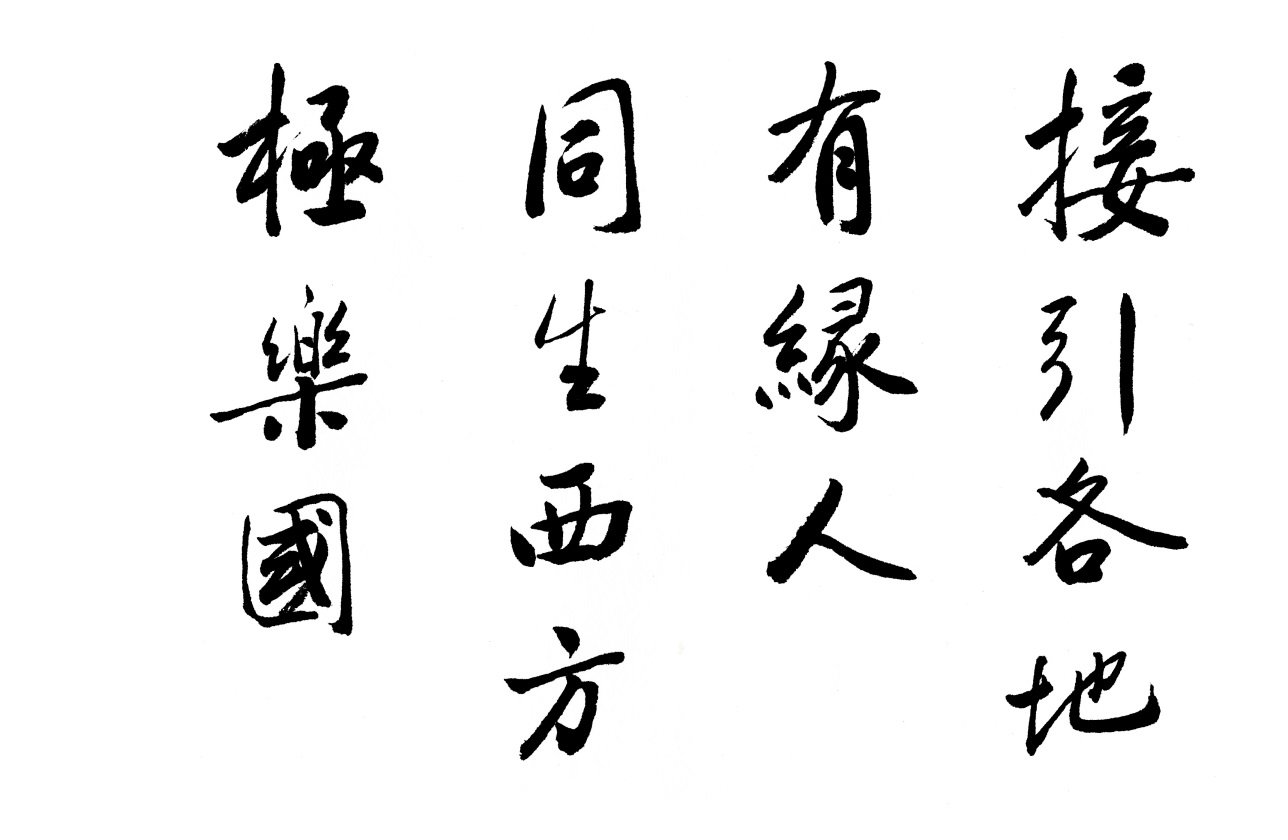 接引各地
有緣人
同生西方
極樂國